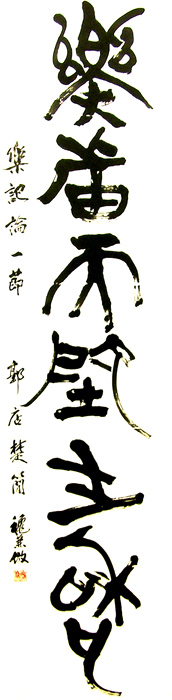 樂者天地之和也
樂記論一節 郭店楚簡